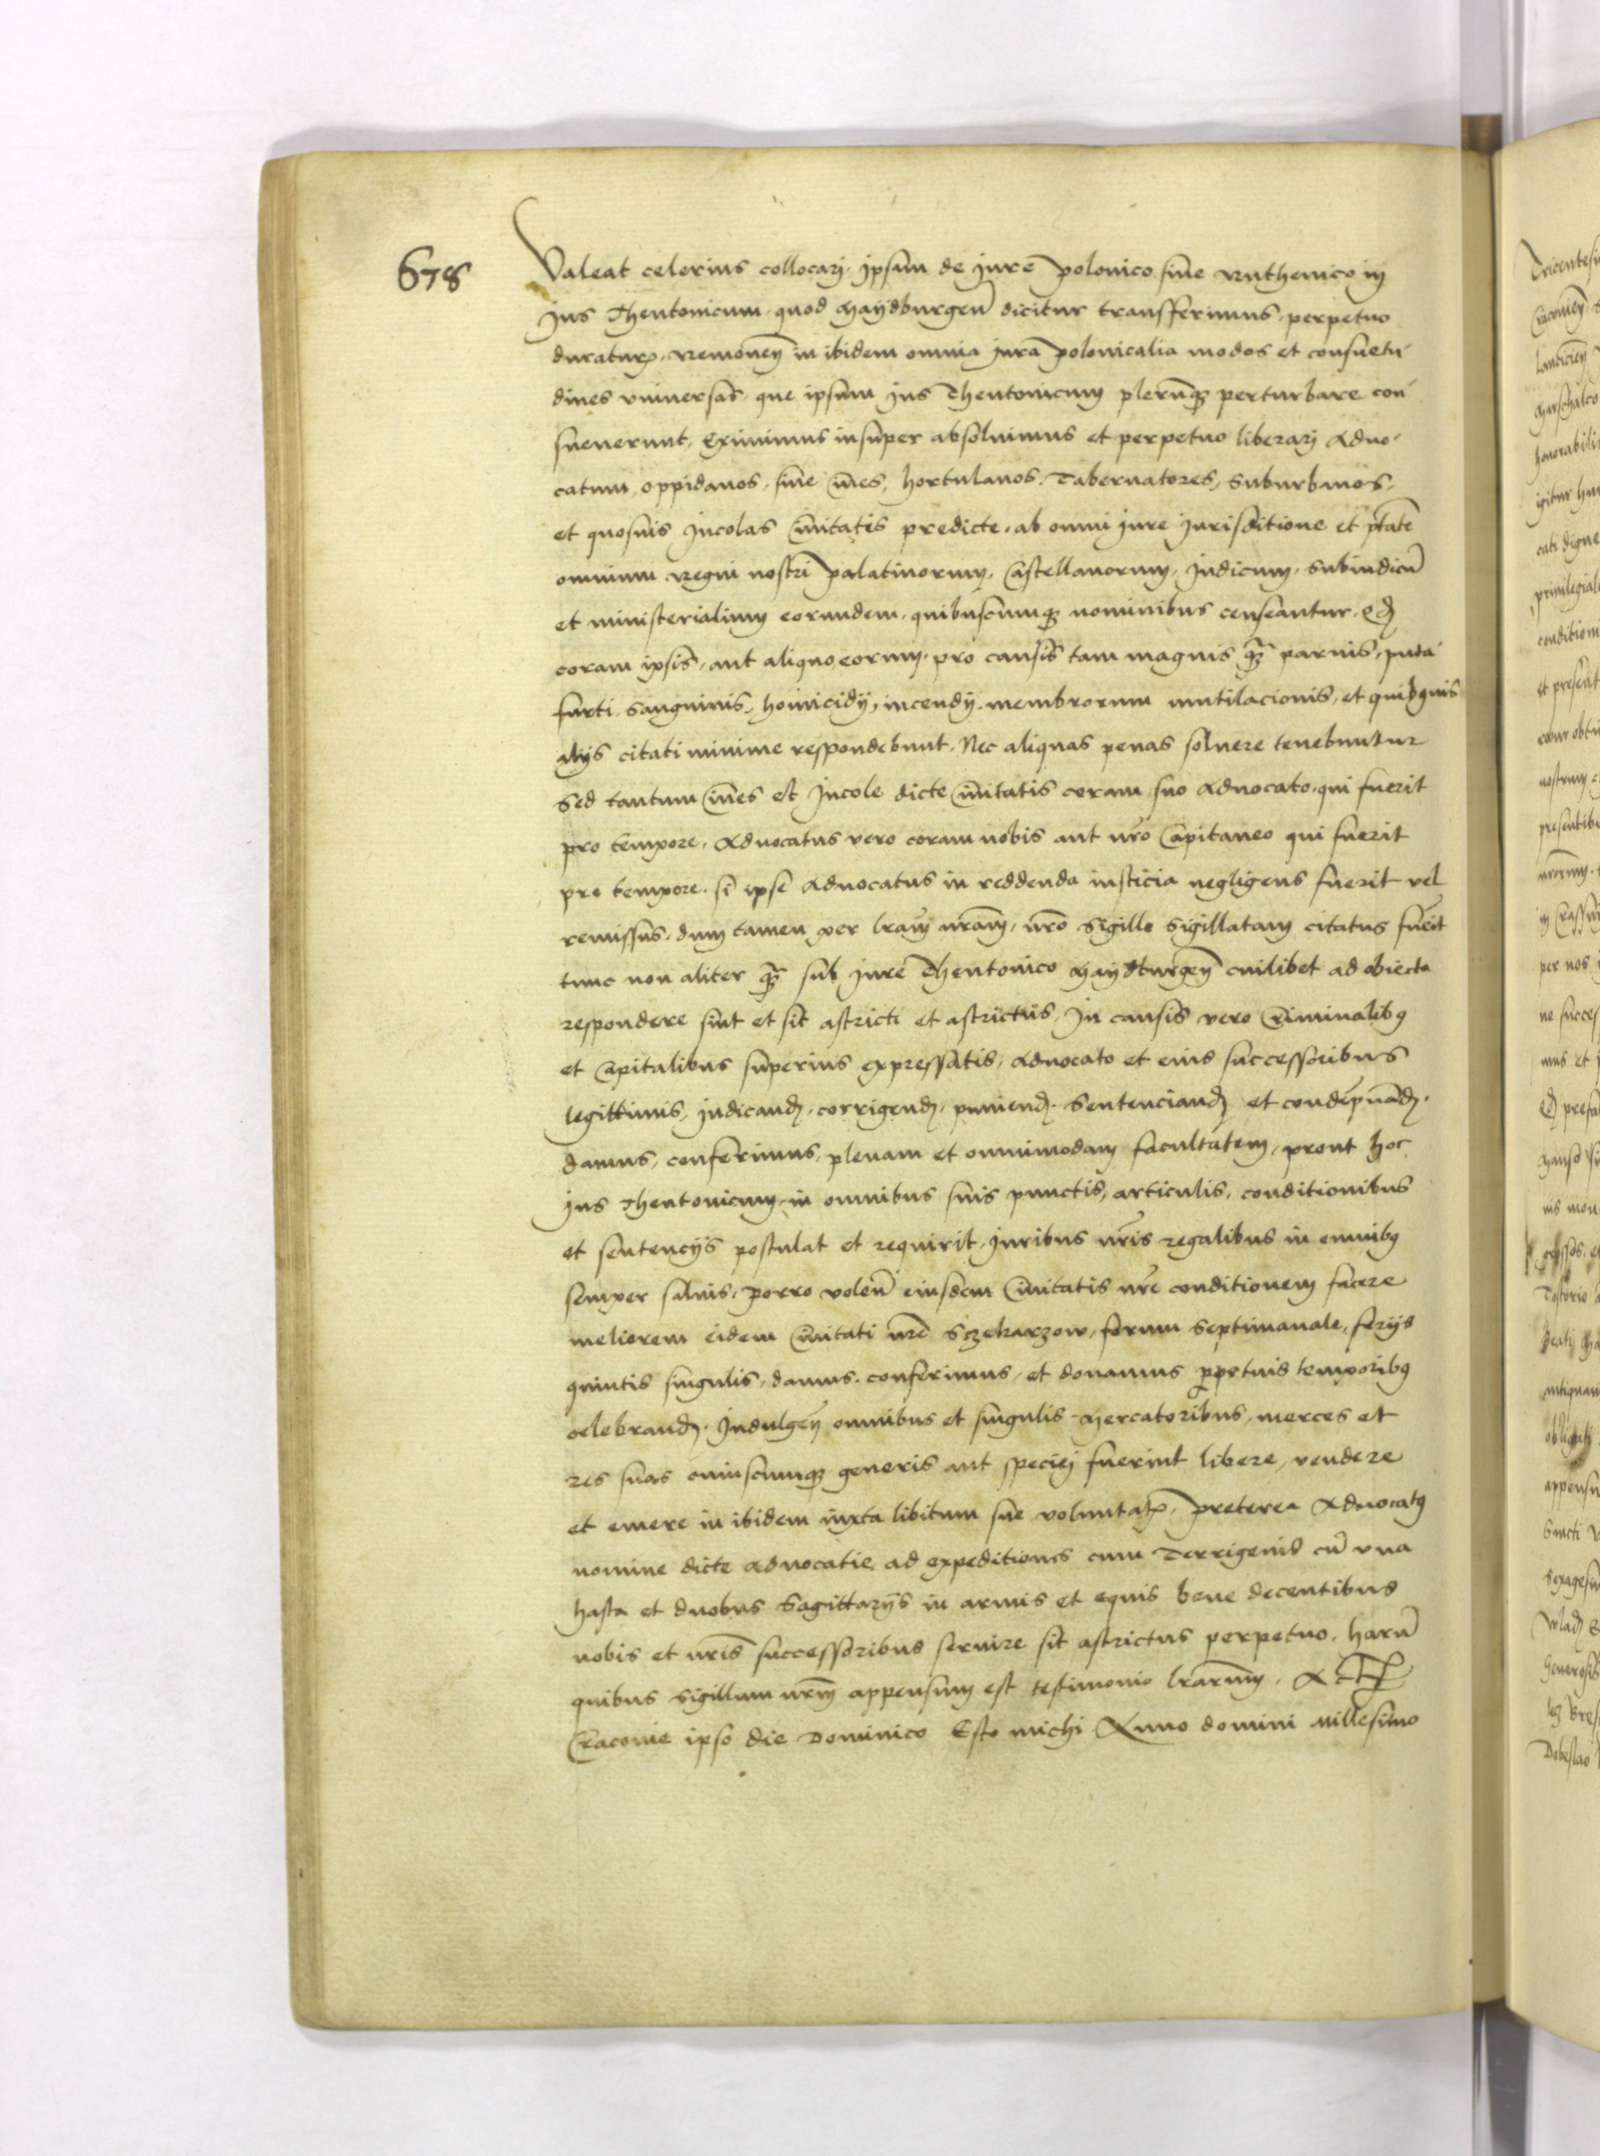 678
Valeat celerius collocarj. ipsum de jure polonico siue Ruthenico in
jus Theutonicum. quod Maydburgeñ dicitur transferimus. perpetuo
duraturũ. Remoueñ in ibidem omnia jura polonicalia modos et consuetu-
dines vniuersas. que ipsum jus Theutonicum plerumq; perturbare con-
sueuerunt, Eximimus insuper absoluimus et perpetuo liberarj Aduo-
catum, oppidanos, siue Ciues, hortulanos, Tabernatores, Suburbanos,
et quosuis Jncolas Ciuitatis predicte. ab omni jure jurisditione et ptate
omnium Regni nostri palatinorum, Castellanorum, Judicum, Subiudicũ
et ministerialium eorundem. quibuscumq; nominibus censeantur. Qđ
coram ipsis, aut aliquo eorum. pro causis tam magnis q̃ paruis, puta
furti, Sanguinis, homicidij, incendij, membrorum mutilacionis, et quibusuis
alijs citati minime respondebunt. Nec aliquas penas soluere tenebuntur
Sed tantum Ciues et Jncole dicte Ciuitatis coram suo Aduocato, qui fuerit
pro tempore, Aduocatus vero coram nobis aut nr̃o Capitaneo qui fuerit
pro tempore. si ipse Aduocatus in reddenda iusticia negligens fuerit vel
remissus. dum tamen per lr̃am nr̃am, nr̃o Sigillo sigillatam citatus fuerit
tunc non aliter q̃ sub jure Theutonico Maydburgeñ cuilibet ad obiecta
respondere sint et sit astricti et astrictus, Jn causis vero Criminalibus
et Capitalibus superius expressatis, Aduocato et eius successoribus
legittimis, judicanđ, corrigenđ, punienđ. Sentencianđ et condẽpnanđ.
damus, conferimus, plenam et omnimodam facultatem, prout hoc
jus Theutonicum, in omnibus suis punctis, articulis, conditionibus
et sentencijs postulat et requirit, juribus nr̃is regalibus in omnibus
semper saluis, porro voleñ eiusdem Ciuitatis nr̃e conditionem facere
meliorem eidem Ciuitati nr̃e Sczekarzow, forum Septimanale, ferijs
quintis singulis, damus. conferimus, et donamus perpetuis temporibus
celebranđ. Jndulgeñ omnibus et singulis Mercatoribus, merces et
res suas cuiuscumq; generis aut speciej fuerint libere, vendere
et emere in ibidem iuxta libitum sue voluntatis, preterea Aduocatus
nomine dicte Aduocatie, ad expeditiones cum Terrigenis cũ vna
hasta et duobus Sagittarijs in armis et equis bene decentibus
nobis et nr̃is successoribus seruire sit astrictus perpetuo. harũ
quibus sigillum nr̃m appensum est testimonio lr̃arum. Actũ
Cracouie ipso die Dominico Esto michi Anno domini Millesimo